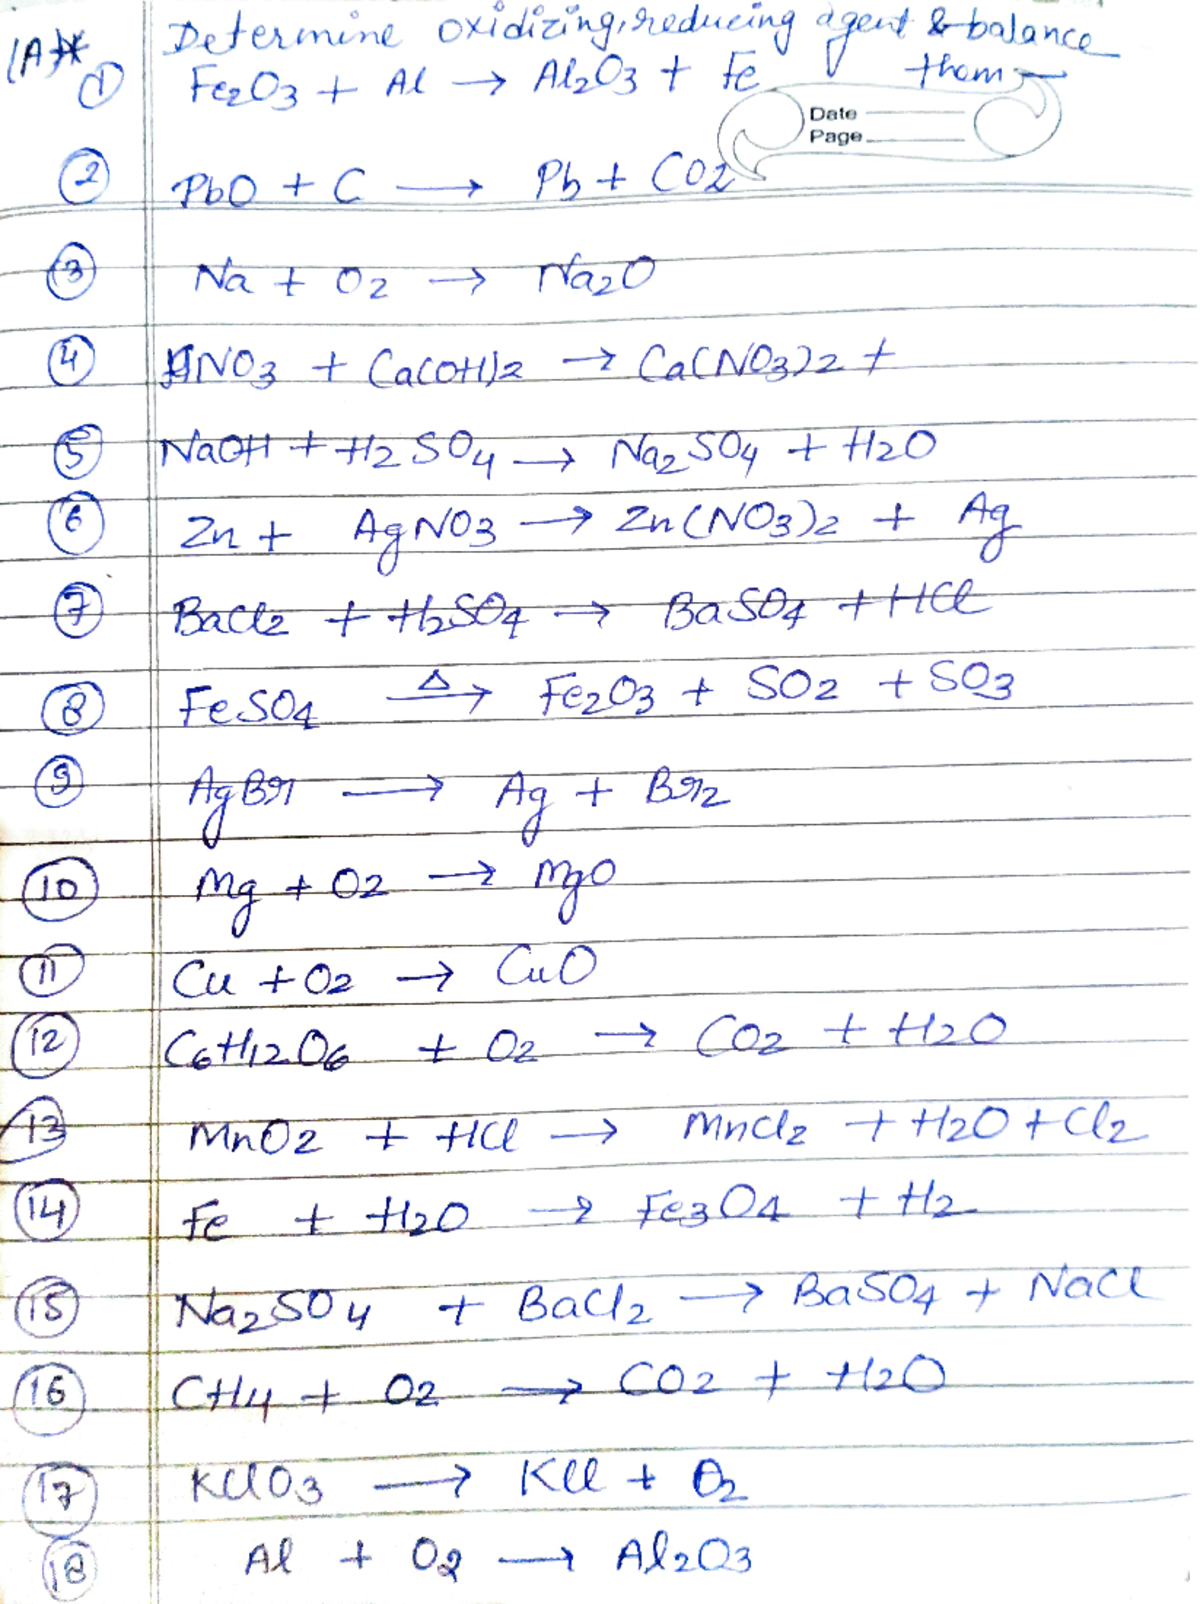 (A)* Determine oxidizing, reducing agent & balance them
① Fe2O3 + Al → Al2O3 + Fe
Date
Page
② PbO + C → Pb + CO2
③ Na + O2 → Na2O
④ HNO3 + Ca(OH)2 → Ca(NO3)2 +
⑤ NaOH + H2SO4 → Na2SO4 + H2O
⑥ Zn + AgNO3 → Zn(NO3)2 + Ag
⑦ BaCl2 + H2SO4 → BaSO4 + HCl
⑧ FeSO4 Δ→ Fe2O3 + SO2 + SO3
⑨ AgBr → Ag + Br2
⑩ Mg + O2 → MgO
⑪ Cu + O2 → CuO
⑫ C6H12O6 + O2 → CO2 + H2O
⑬ MnO2 + HCl → MnCl2 + H2O + Cl2
⑭ Fe + H2O → Fe3O4 + H2
⑮ Na2SO4 + BaCl2 → BaSO4 + NaCl
⑯ CH4 + O2 → CO2 + H2O
⑰ KClO3 → KCl + O2
⑱ Al + O2 → Al2O3